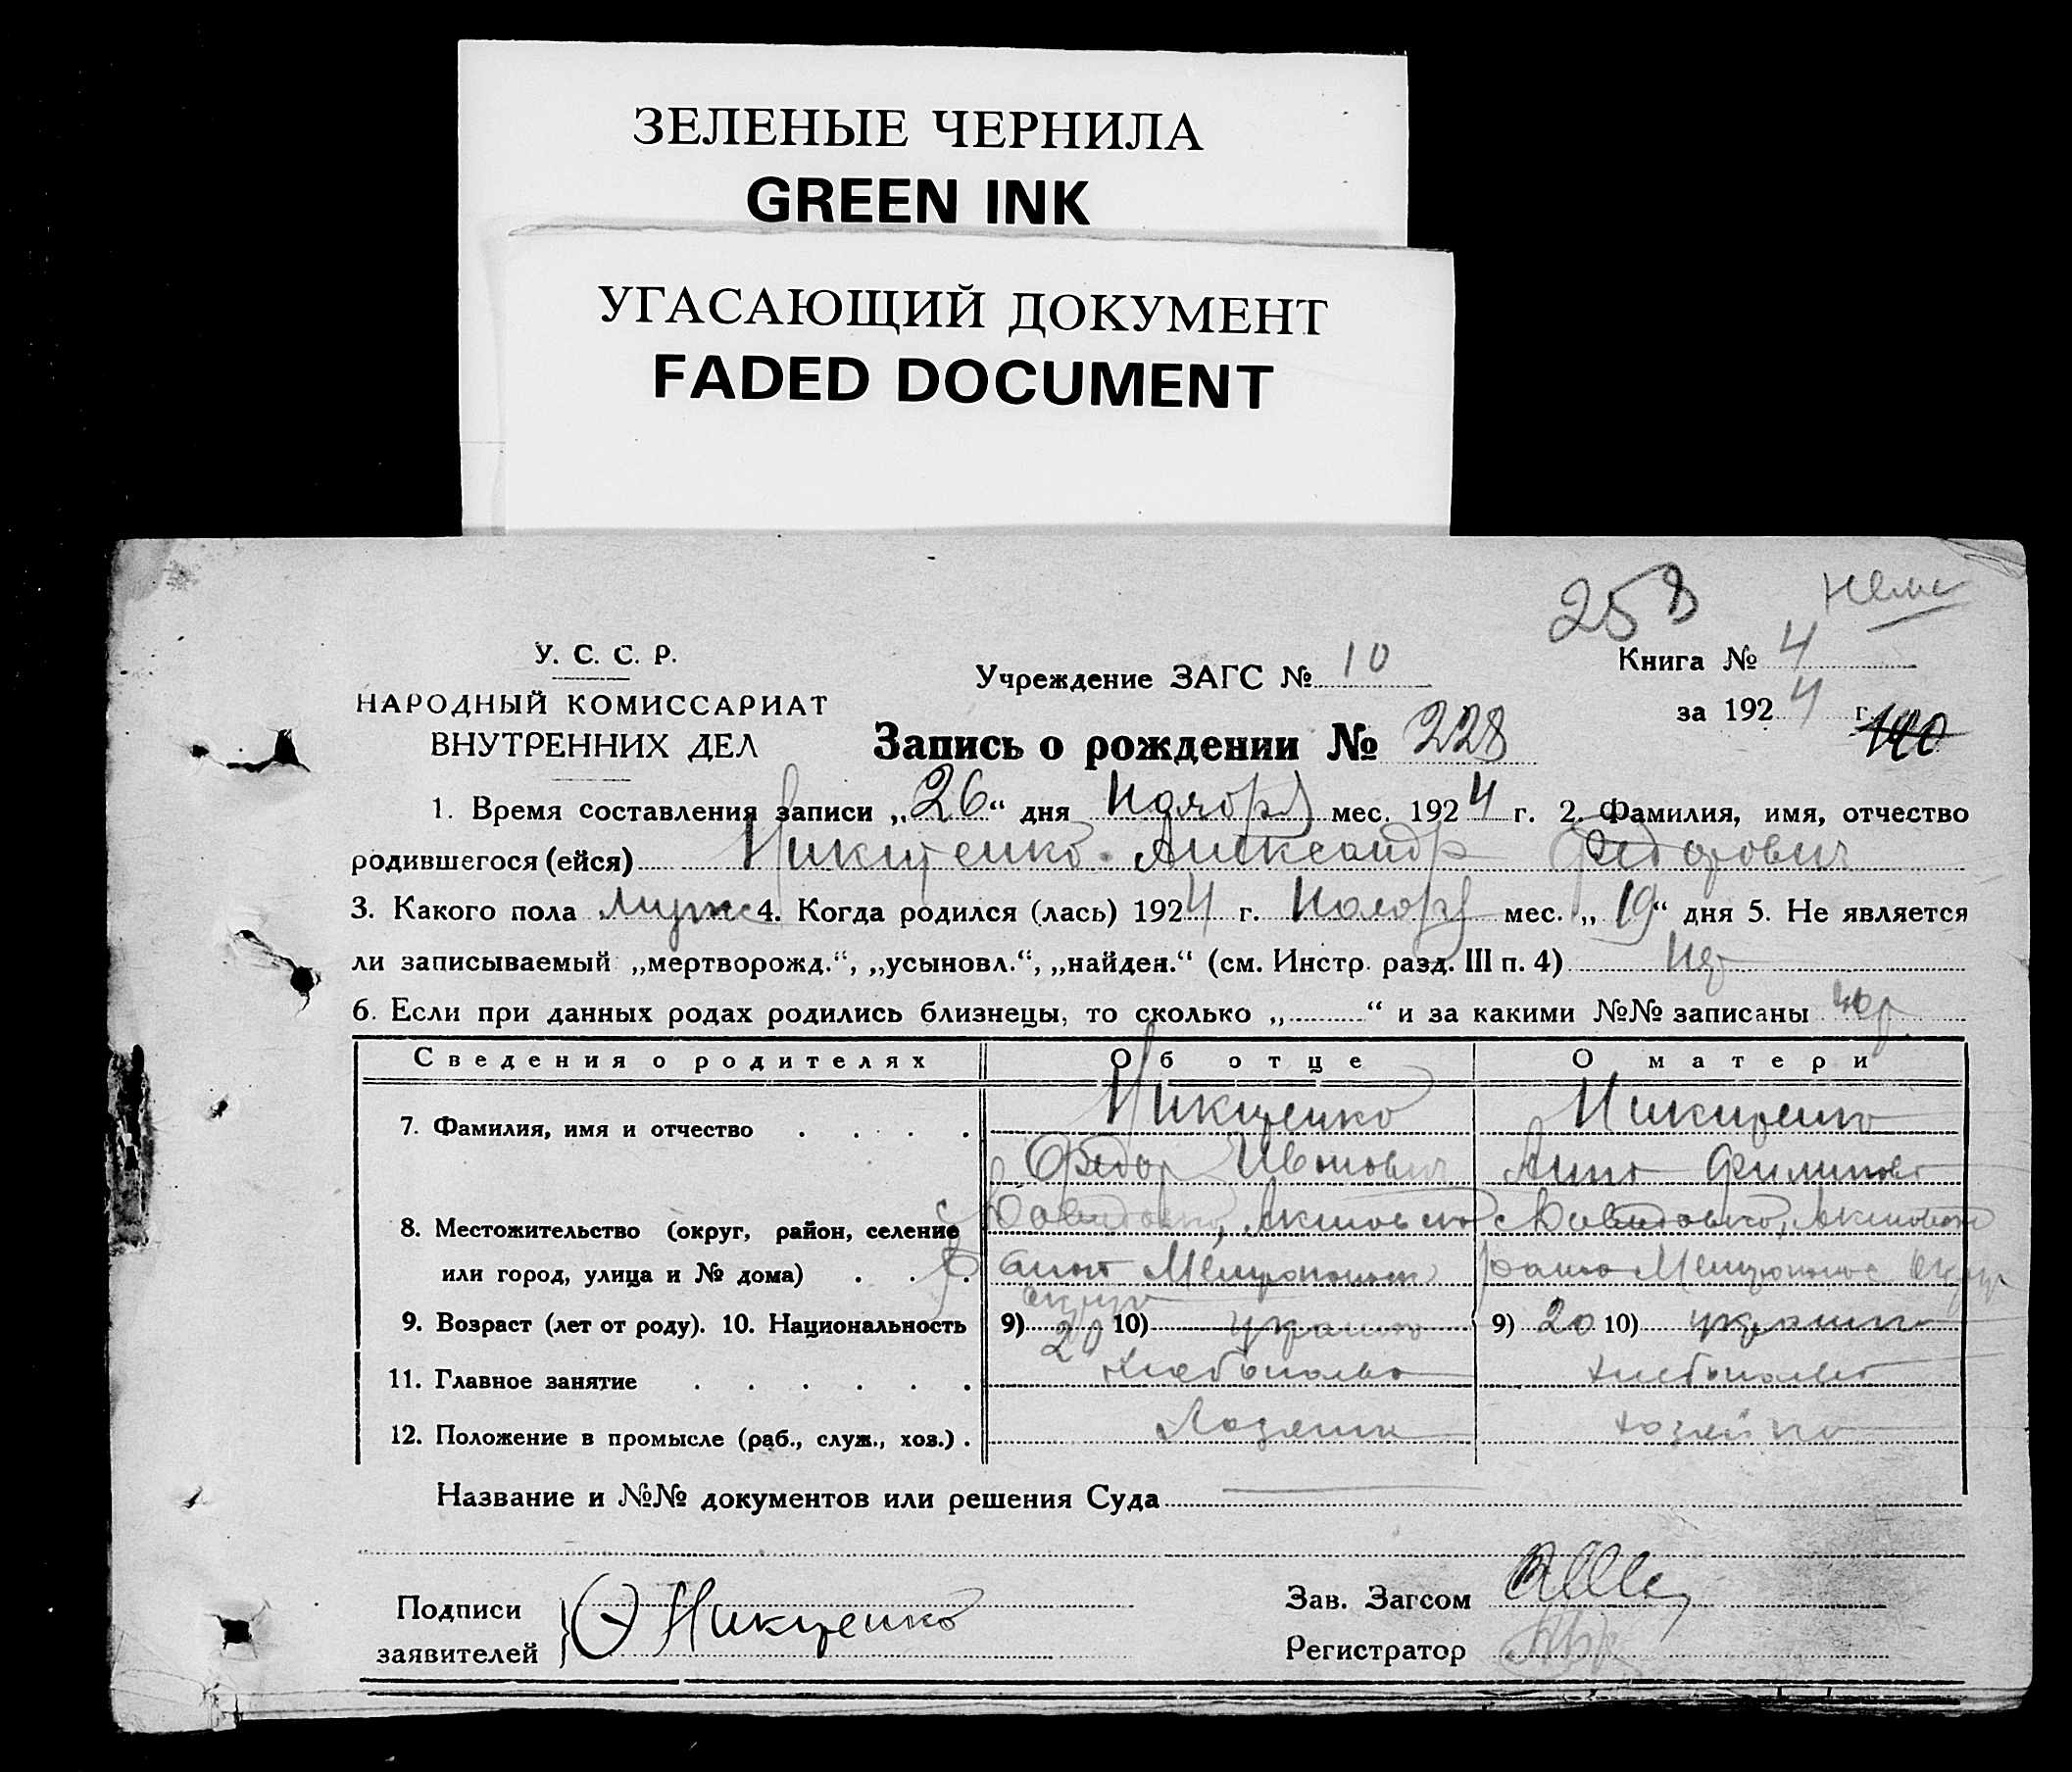 ЗЕЛЕНЫЕ ЧЕРНИЛА
GREEN INK
УГАСАЮЩИЙ ДОКУМЕНТ
FADED DOCUMENT
258
У. С. С. Р.
НАРОДНЫЙ КОМИССАРИАТ
ВНУТРЕННИХ ДЕЛ
Учреждение ЗАГС № 10
Книга № 4
за 1924 г.
190
Запись о рождении № 228
1. Время составления записи „26“ дня Ноября мес. 1924 г. 2. Фамилия, имя, отчество
родившегося (ейся) Никитенко Александр Федорович
3. Какого пола муж 4. Когда родился (лась) 1924 г. Ноября мес. „19“ дня 5. Не является
ли записываемый „мертворожд.“, „усыновл.“, „найден.“ (см. Инстр. разд. III п. 4) Нет
6. Если при данных родах родились близнецы, то сколько „ “ и за какими №№ записаны нет
Сведения о родителях Об отце О матери
7. Фамилия, имя и отчество Никитенко Никитенко
Федор Иванович Анна Филипов
8. Местожительство (округ, район, селение Давидовка, Акимовско Давидовка, Акимовск
или город, улица и № дома) района Мелитопольск района Мелитопольс округ
округа
9. Возраст (лет от роду). 10. Национальность 9) 20 10) украин 9) 20 10) украин
11. Главное занятие Хлебопаш Хлебопаш
12. Положение в промысле (раб., служ., хоз.) Хозяин хозяйка
Название и №№ документов или решения Суда
Подписи
заявителей
Никитенко
Зав. Загсом
Регистратор